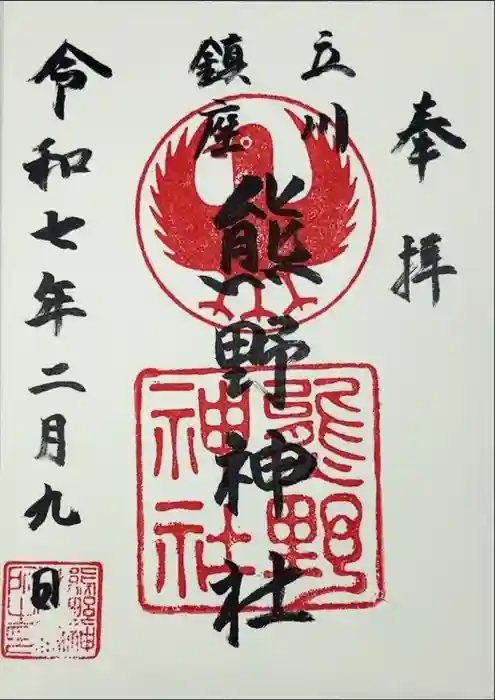 奉拝
立川
鎮座
熊野神社
熊野
神社
令和七年二月九日